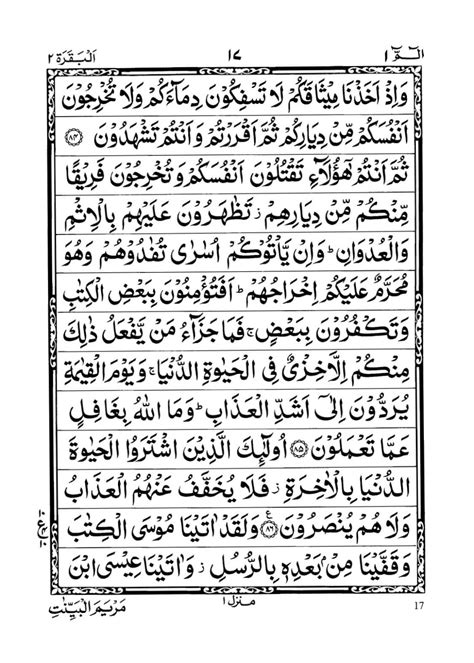 الٓمّٓ ١ ١٧ اَلْبَقَرَة ٢
وَاِذْ اَخَذْنَا مِيْثَاقَكُمْ لَا تَسْفِكُوْنَ دِمَآءَكُمْ وَلَا تُخْرِجُوْنَ
اَنْفُسَكُمْ مِّنْ دِيَارِكُمْ ثُمَّ اَقْرَرْتُمْ وَاَنْتُمْ تَشْهَدُوْنَ ﴿٨٤﴾
ثُمَّ اَنْتُمْ هٰٓؤُلَآءِ تَقْتُلُوْنَ اَنْفُسَكُمْ وَتُخْرِجُوْنَ فَرِيْقًا
مِّنْكُمْ مِّنْ دِيَارِهِمْ ز تَظٰهَرُوْنَ عَلَيْهِمْ بِالْاِثْمِ
وَالْعُدْوَانِ ط وَاِنْ يَّاْتُوْكُمْ اُسٰرٰى تُفٰدُوْهُمْ وَهُوَ
مُحَرَّمٌ عَلَيْكُمْ اِخْرَاجُهُمْ ط اَفَتُؤْمِنُوْنَ بِبَعْضِ الْكِتٰبِ
وَتَكْفُرُوْنَ بِبَعْضٍ ج فَمَا جَزَآءُ مَنْ يَّفْعَلُ ذٰلِكَ
مِنْكُمْ اِلَّا خِزْىٌ فِى الْحَيٰوةِ الدُّنْيَا ج وَيَوْمَ الْقِيٰمَةِ
يُرَدُّوْنَ اِلٰٓى اَشَدِّ الْعَذَابِ ط وَمَا اللّٰهُ بِغَافِلٍ
عَمَّا تَعْمَلُوْنَ ﴿٨٥﴾ اُولٰٓئِكَ الَّذِيْنَ اشْتَرَوُا الْحَيٰوةَ
الدُّنْيَا بِالْاٰخِرَةِ ز فَلَا يُخَفَّفُ عَنْهُمُ الْعَذَابُ
وَلَا هُمْ يُنْصَرُوْنَ ﴿٨٦﴾ ع وَلَقَدْ اٰتَيْنَا مُوْسَى الْكِتٰبَ
١٠
ع
١٠
وَقَفَّيْنَا مِنْۢ بَعْدِهٖ بِالرُّسُلِ ز وَاٰتَيْنَا عِيْسَى ابْنَ
منزل ١
مَرْيَمَ الْبَيِّنٰتِ
17